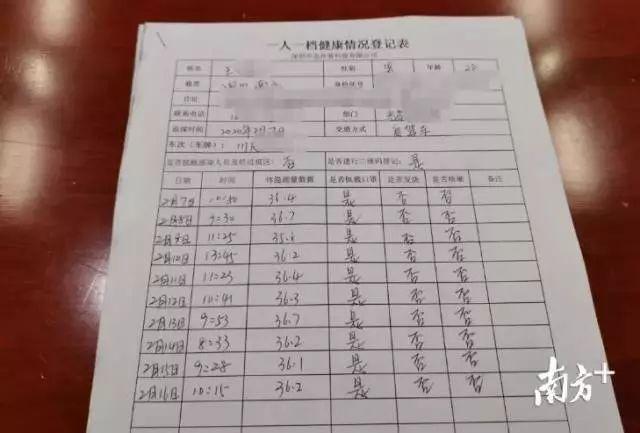 一人一档健康情况登记表
姓名 性别 年龄
籍贯 身份证号
住址
联系电话 部门
返深时间 2020年2月7日 交通方式 自驾车
车次(车牌):
是否接触感染人员及经过疫区: 否 是否进行二维码登记: 是
日期 时间 体温测量数据 是否佩戴口罩 是否发烧 是否咳嗽 备注
2月7日 10:30 36.4 是 否 否
2月8日 9:30 36.7 是 否 否
2月9日 11:25 是 否 否
2月10日 13:45 36.2 是 否 否
2月11日 11:23 36.4 是 否 否
2月12日 10:41 36.3 是 否 否
2月13日 9:53 36.7 是 否 否
2月14日 8:33 36.2 是 否 否
2月15日 9:28 36.1 是 否 否
2月16日 10:15 36.2 是 否 否
南方+